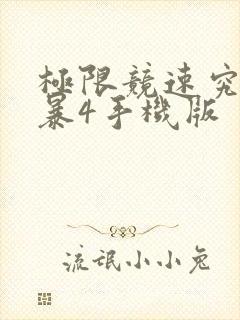 極限競速究
暴4手機版
流氓小小兔